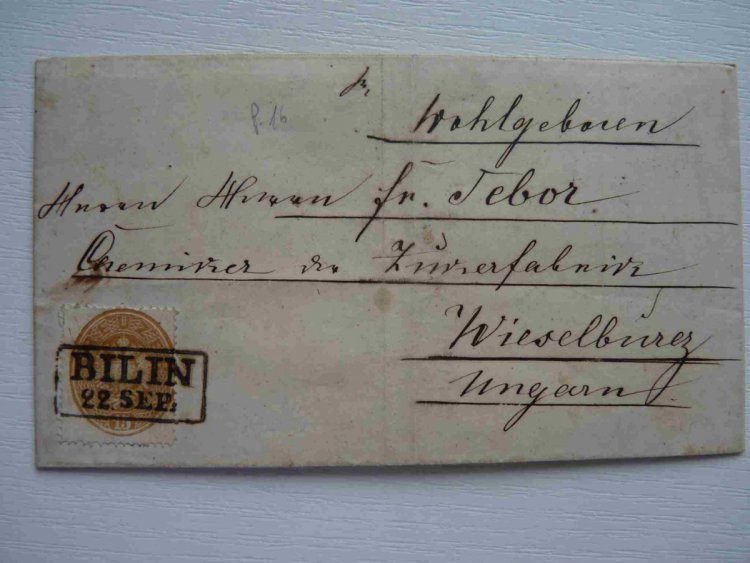 Sr.
p. 16
Wohlgeboren
Herrn Herrn Fr. Tebor
Chemiker der Zuckerfabrick
Wieselburg
Ungarn
BILIN
22 SEP.
15